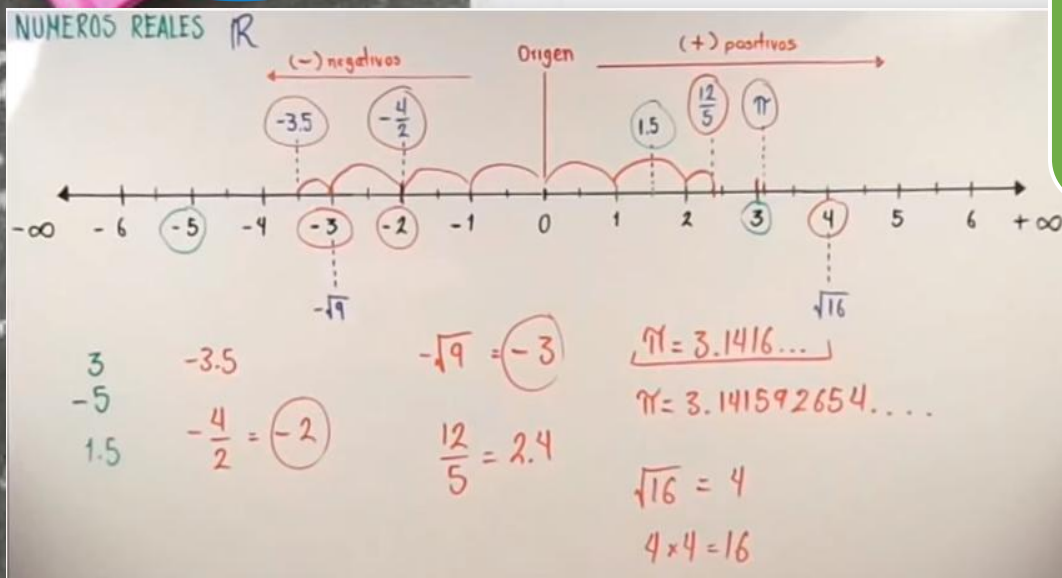 NUMEROS REALES ℝ
(-) negativos
Origen
(+) positivos
-3.5
-4/2
1.5
12/5
π
-∞ -6 -5 -4 -3 -2 -1 0 1 2 3 4 5 6 +∞
-√9
√16
3
-5
1.5
-3.5
-4/2 = -2
-√9 = -3
12/5 = 2.4
π = 3.1416...
π = 3.141592654....
√16 = 4
4×4=16